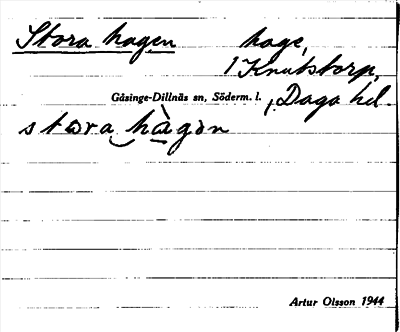 Stora hagen hage,
1 Knutstorp,
Gåsinge-Dillnäs sn, Söderm. l., Daga hd.
stωra hàgən
Artur Olsson 1944